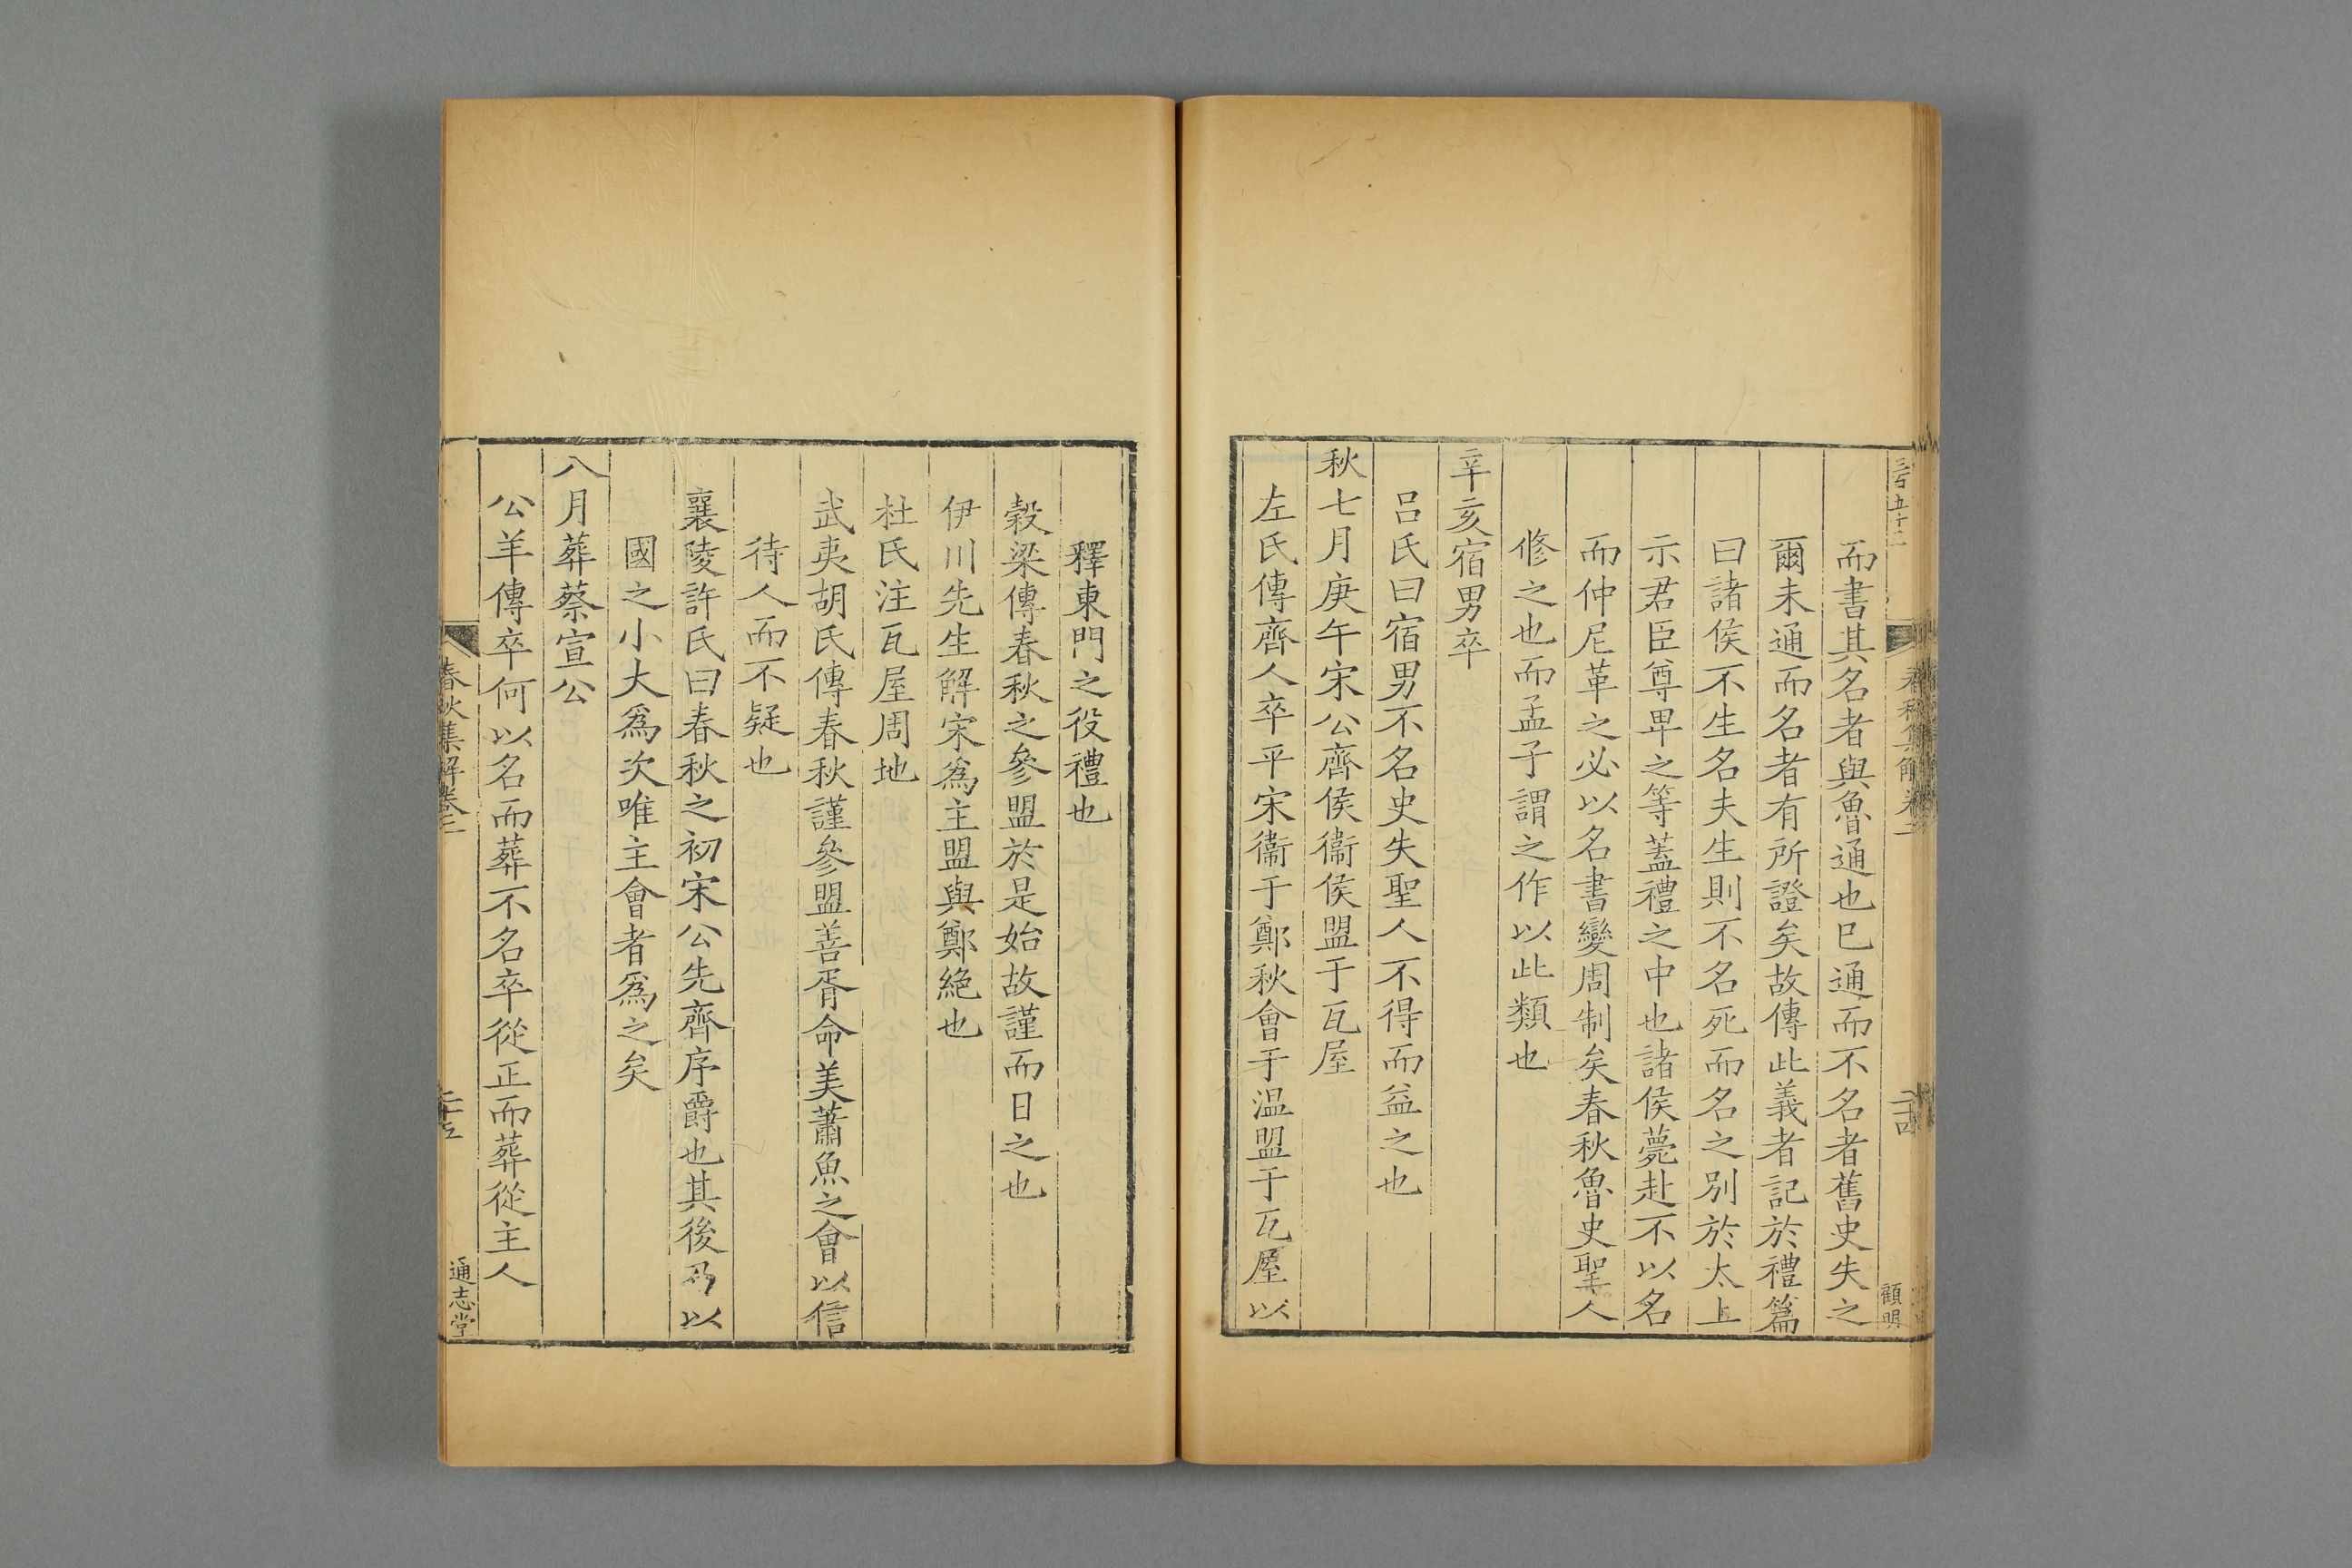 而書其名者與魯通也巳通而不名者舊史失之
爾未通而名者有所證矣故傳此義者記於禮篇
曰諸侯不生名夫生則不名死而名之別於太上
示君臣尊卑之等蓋禮之中也諸侯薨赴不以名
而仲尼革之必以名書變周制矣春秋魯史聖人
修之也而孟子謂之作以此類也
辛亥宿男卒
呂氏曰宿男不名史失聖人不得而益之也
秋七月庚午宋公齊侯衞侯盟于瓦屋
左氏傳齊人卒平宋衞于鄭秋會于温盟于瓦屋以
釋東門之役禮也
穀梁傳春秋之參盟於是始故謹而日之也
伊川先生解宋爲主盟與鄭絶也
杜氏注瓦屋周地
武夷胡氏傳春秋謹參盟善胥命美蕭魚之會以信
待人而不疑也
襄陵許氏曰春秋之初宋公先齊序爵也其後乃以
國之小大爲次唯主會者爲之矣
八月葬蔡宣公
公羊傳卒何以名而葬不名卒從正而葬從主人
春秋集解卷二
二十五
通志堂